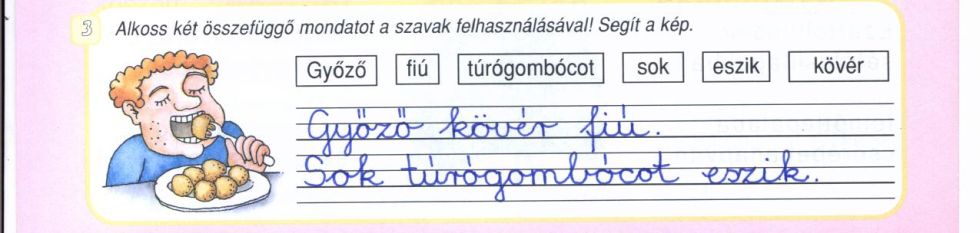 3 Alkoss két összefüggő mondatot a szavak felhasználásával! Segít a kép.
Győző fiú túrógombócot sok eszik kövér
Győző kövér fiú.
Sok túrógombócot eszik.